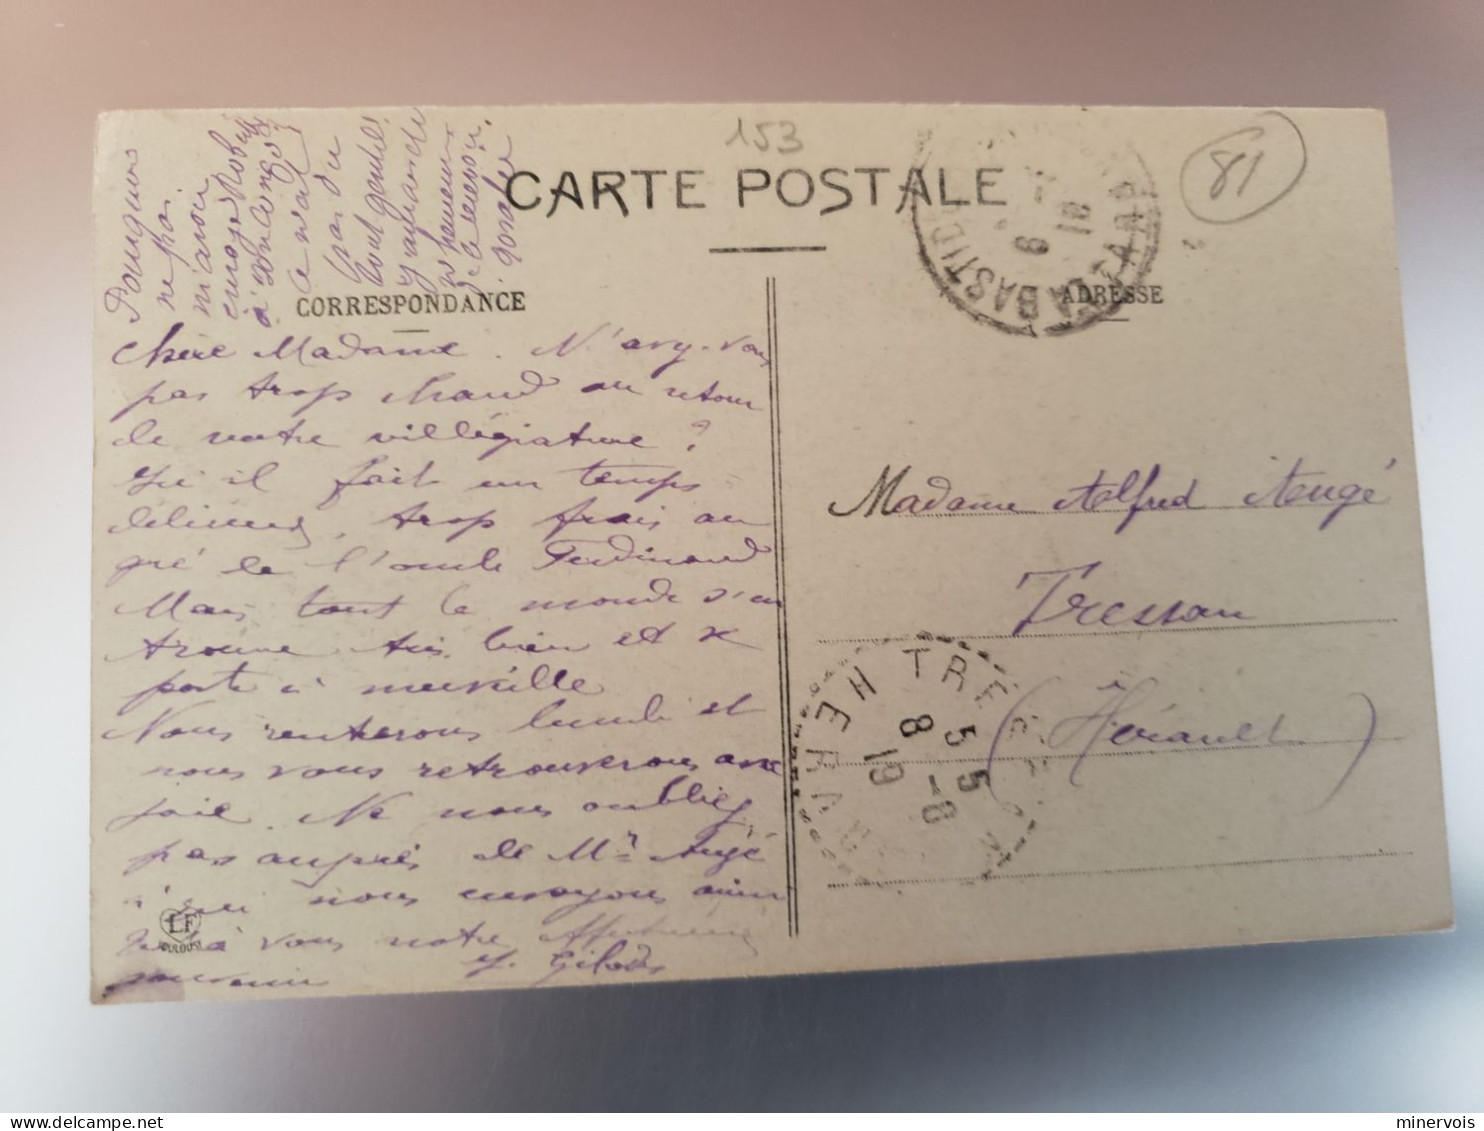 153
81
CARTE POSTALE
CORRESPONDANCE
ADRESSE
Pourquoi
ne pas
m'avoir
envoyé Robert
à
Ce n'était
pas du
tout gentil
Chère Madame. N'avez-vous
pas trop chaud au retour
de votre villégiature ?
Ici il fait un temps
délicieux, trop frais au
gré de l'oncle Ferdinand
Mais tout le monde s'en
trouve très bien et se
porte à merveille
Nous rentrerons lundi et
nous vous retrouverons avec
joie. Ne nous oubliez
pas auprès de Mr Augé
à qui nous envoyons ainsi
qu'à vous notre affectueux
souvenir
Y. Gilodes
Madame Alfred Augé
Tressan
(Hérault)
LABASTIDE
TARN
6
18
TRESSAN
HERAULT
5 5 -8
8 19
LF
TOULOUSE
minervois